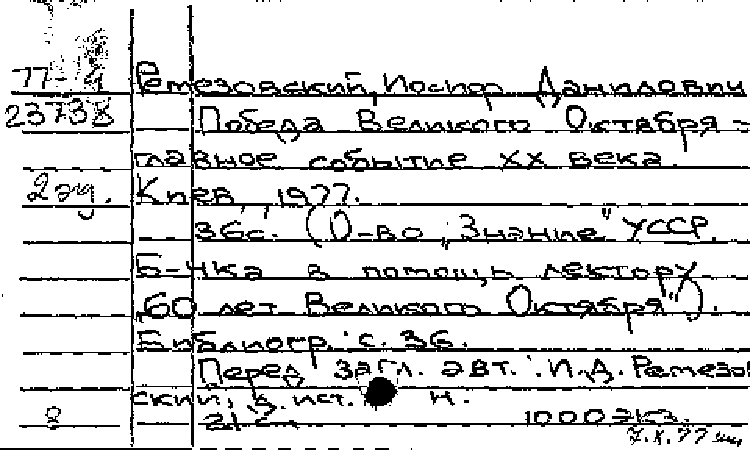 77-4 Ремезовский, Иосиф Данилович
23738 Победа Великого Октября –
главное событие XX века.
2 эк. Киев, 1977.
36с. (О-во „Знание" УССР.
Б-чка в помощь лектору
„60 лет Великого Октября").
Библиогр.: с. 36.
Перед загл. авт.: И.Д. Ремезов
ский, д. ист. н.
8 21 1000 экз.
7.X.77